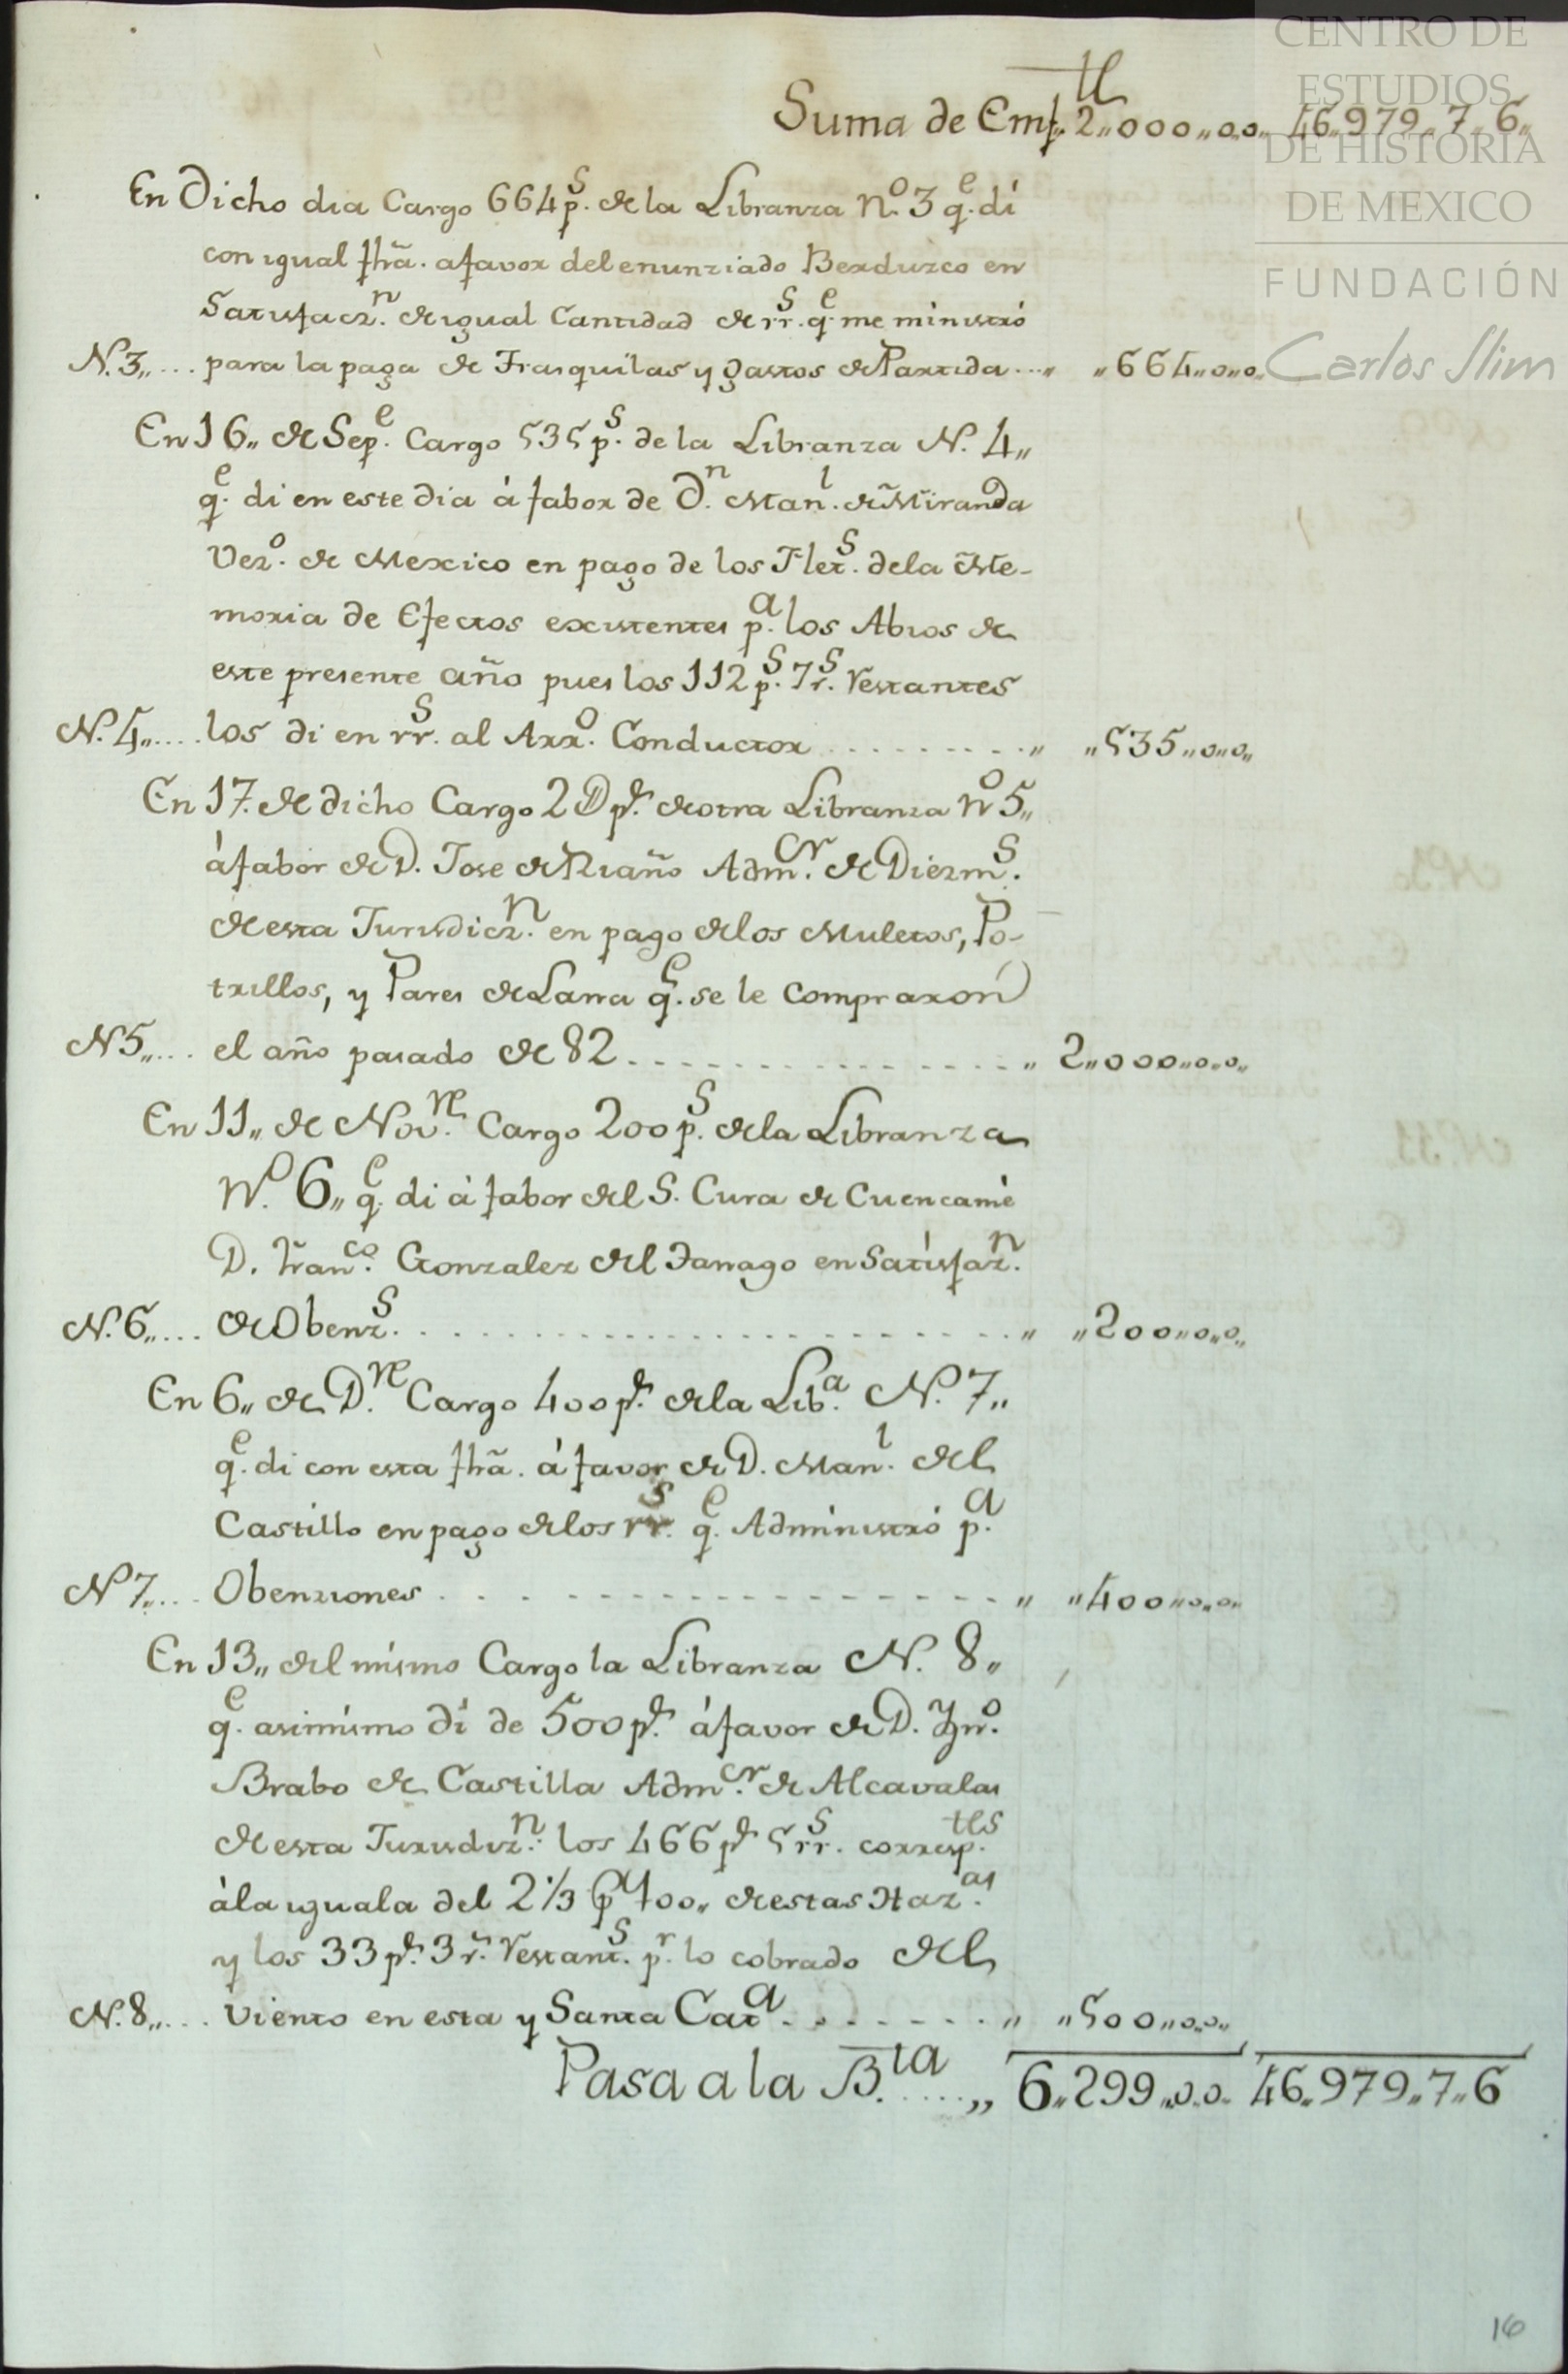 CENTRO DE
ESTUDIOS
DE HISTORIA
DE MEXICO
FUNDACIÓN
Carlos Slim
Suma de Emf.tl 2,,000,,0,,0,, 46,,979,,7,,6,,
En Dicho dia Cargo 664 p.s de la Libranza n.o 3 q.e di
con igual fhã. afavor del enunziado Berduzco en
Satisfacz.n de igual Cantidad de rr.s q.e me ministró
N. 3,,... para la paga de Trasquilas y gastos de Partida...,, ,,664,,0,,0,,
En 16,, de Sep.e Cargo 535 p.s de la Libranza N. 4,,
q.e di en este dia á fabor de D.n Man.l de Miranda
Vez.o de Mexico en pago de los Flet.s dela Me-
moria de Efectos existentes p.a los Abios de
este presente año pues los 112 p.s 7 r.s restantes
N. 4,,.... los di en rr.s al Arr.o Conductor ......... ,, ,,535,,0,,0,,
En 17. de dicho Cargo 2D p.s de otra Libranza N.o 5,,
á fabor de D. Jose de Riaño Adm.or de Diezm.s
de esta Jurisdicz.n en pago de los Muletos, Po-
trillos, y Pares de Lana q.e se le compraron
N 5,,... el año pasado de 82 ................ ,, 2,,000,,0,,0,,
En 11,, de Nov.re Cargo 200 p.s de la Libranza
N.o 6,, q.e di á fabor del S. Cura de Cuencamé
D. Fran.co Gonzalez del Tanago en Satisfaz.n
N. 6,,... de Obenz.s ........................ ,, ,,200,,0,,0,,
En 6,, de D.re Cargo 400 p.s de la Lib.a N. 7,,
q.e di con esta fhã. á favor de D. Man.l del
Castillo en pago de los rr.s q.e Administró p.a
N 7,,... Obenziones ........................ ,, ,,400,,0,,0,,
En 13,, del mismo Cargo la Libranza N. 8,,
q.e asimismo di de 500 p.s á favor de D. Yg.o
Brabo de Castilla Adm.or de Alcavalas
de esta Jurisdiz.n los 466 p.s 5 rr.s corresp.tes
á la iguala del 2 1/3 p.r 100,, de estas Haz.as
y los 33 p.s 3 r.s restant.s p.r lo cobrado del
N. 8,,... Viento en esta y Santa Cat.a ........ ,, ,,500,,0,,0,,
Pasa a la B.ta ....,, 6,,299,,0,,0,, 46,,979,,7,,6
16